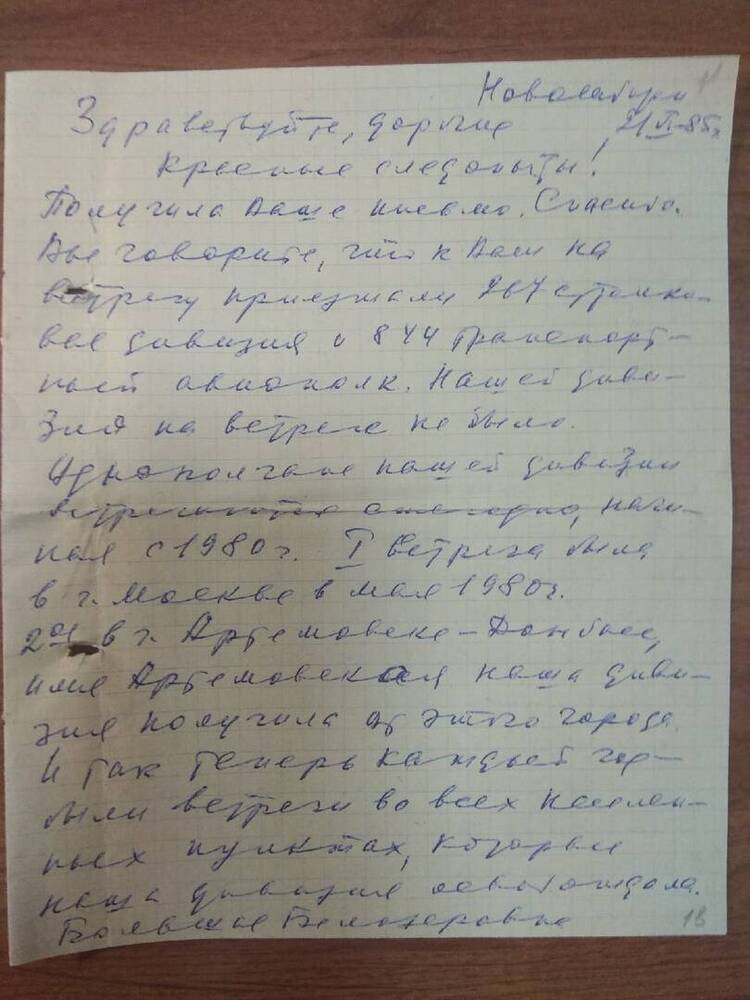 Новосибирск
21/VI-85г.
Здравствуйте, дорогие
красные следопыты!
Получила Ваше письмо. Спасибо.
Вы говорите, что к Вам на
встречу приезжали 267 стрелко-
вая дивизия и 844 транспорт-
ный авиополк. Нашей диви-
зии на встрече не было.
Однополчане нашей дивизии
встречаются ежегодно, начи-
ная с 1980 г. I встреча была
в г. Москве в мае 1980г.
2ая в г. Артемовске-Донбасс,
имя Артемовская наша диви-
зия получила от этого города.
И так теперь каждый год
были встречи во всех населен-
ных пунктах, которые
наша дивизия освобождала.
Большие Белозеровые
18